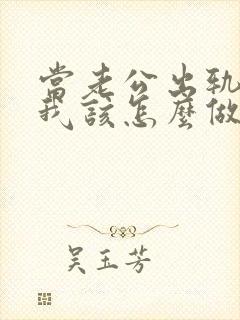 當老公出軌
我該怎麼做
吳玉芳